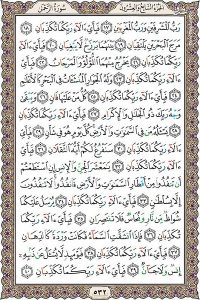 الجزء السابع والعشرون سورة الرحمن
رَبُّ ٱلۡمَشۡرِقَيۡنِ وَرَبُّ ٱلۡمَغۡرِبَيۡنِ ١٧ فَبِأَيِّ ءَالَآءِ رَبِّكُمَا تُكَذِّبَانِ ١٨
مَرَجَ ٱلۡبَحۡرَيۡنِ يَلۡتَقِيَانِ ١٩ بَيۡنَهُمَا بَرۡزَخٞ لَّا يَبۡغِيَانِ ٢٠ فَبِأَيِّ
ءَالَآءِ رَبِّكُمَا تُكَذِّبَانِ ٢١ يَخۡرُجُ مِنۡهُمَا ٱللُّؤۡلُؤُ وَٱلۡمَرۡجَانُ ٢٢ فَبِأَيِّ ءَالَآءِ
رَبِّكُمَا تُكَذِّبَانِ ٢٣ وَلَهُ ٱلۡجَوَارِ ٱلۡمُنشَـَٔاتُ فِي ٱلۡبَحۡرِ كَٱلۡأَعۡلَٰمِ
٢٤ فَبِأَيِّ ءَالَآءِ رَبِّكُمَا تُكَذِّبَانِ ٢٥ كُلُّ مَنۡ عَلَيۡهَا فَانٖ ٢٦ وَيَبۡقَىٰ
وَجۡهُ رَبِّكَ ذُو ٱلۡجَلَٰلِ وَٱلۡإِكۡرَامِ ٢٧ فَبِأَيِّ ءَالَآءِ رَبِّكُمَا تُكَذِّبَانِ
٢٨ يَسۡـَٔلُهُۥ مَن فِي ٱلسَّمَٰوَٰتِ وَٱلۡأَرۡضِۚ كُلَّ يَوۡمٍ هُوَ فِي شَأۡنٖ ٢٩ فَبِأَيِّ
ءَالَآءِ رَبِّكُمَا تُكَذِّبَانِ ٣٠ سَنَفۡرُغُ لَكُمۡ أَيُّهَ ٱلثَّقَلَانِ ٣١ فَبِأَيِّ
ءَالَآءِ رَبِّكُمَا تُكَذِّبَانِ ٣٢ يَٰمَعۡشَرَ ٱلۡجِنِّ وَٱلۡإِنسِ إِنِ ٱسۡتَطَعۡتُمۡ
أَن تَنفُذُواْ مِنۡ أَقۡطَارِ ٱلسَّمَٰوَٰتِ وَٱلۡأَرۡضِ فَٱنفُذُواْۚ لَا تَنفُذُونَ
إِلَّا بِسُلۡطَٰنٖ ٣٣ فَبِأَيِّ ءَالَآءِ رَبِّكُمَا تُكَذِّبَانِ ٣٤ يُرۡسَلُ عَلَيۡكُمَا
شُوَاظٞ مِّن نَّارٖ وَنُحَاسٞ فَلَا تَنتَصِرَانِ ٣٥ فَبِأَيِّ ءَالَآءِ رَبِّكُمَا
تُكَذِّبَانِ ٣٦ فَإِذَا ٱنشَقَّتِ ٱلسَّمَآءُ فَكَانَتۡ وَرۡدَةٗ كَٱلدِّهَانِ ٣٧
فَبِأَيِّ ءَالَآءِ رَبِّكُمَا تُكَذِّبَانِ ٣٨ فَيَوۡمَئِذٖ لَّا يُسۡـَٔلُ عَن ذَنۢبِهِۦٓ
إِنسٞ وَلَا جَآنّٞ ٣٩ فَبِأَيِّ ءَالَآءِ رَبِّكُمَا تُكَذِّبَانِ ٤٠
٥٣٢